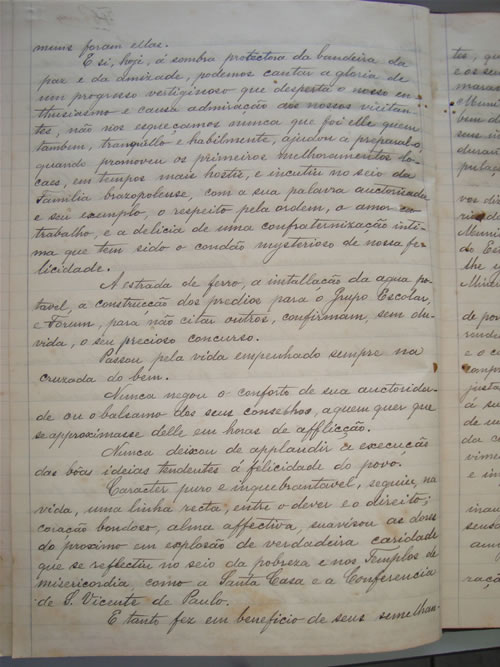 munis foram ellas.
E si, hoje, á sombra protectora da bandeira da
paz e da amizade, podemos cantar a gloria de
um progresso vertiginoso que desperta o nosso en-
thusiasmo e causa admiração aos nossos visitan-
tes, não nos esqueçamos nunca que foi elle quem
tambem, tranquillo e habilmente, ajudou a preparal-o
quando promoveu os primeiros melhoramentos lo-
caes, em tempos mais hostis, e incutiu no seio da
Familia brazopolense, com a sua palavra auctorizada
e seu exemplo, o respeito pela ordem, o amor ao
trabalho, e a delicia de uma confraternização inti-
ma que tem sido o condão mysterioso de nossa fe-
licidade.
A estrada de ferro, a installação da agua po-
tavel, a construcção dos predios para o Grupo Escolar,
e Forum, para não citar outros, confirmam, sem du-
vida, o seu precioso concurso.
Passou pela vida empenhado sempre na
cruzada do bem.
Nunca negou o conforto de sua auctorida-
de ou o balsamo dos seus conselhos, a quem quer que
se approximasse delle em horas de afflicção.
Nunca deixou de applaudir á execução
das bôas ideias tendentes á felicidade do povo.
Caracter puro e inquebrantavel, seguiu, na
vida, uma linha recta, entre o dever e o direito;
coração bondoso, alma affectiva, suavisou as dores
do proximo em explosão de verdadeira caridade
que se reflectiu no seio da pobreza e nos Templos de
misericordia como a Santa Casa e a Conferencia
de S. Vicente de Paulo.
E tanto fez em beneficio de seus semelhan-